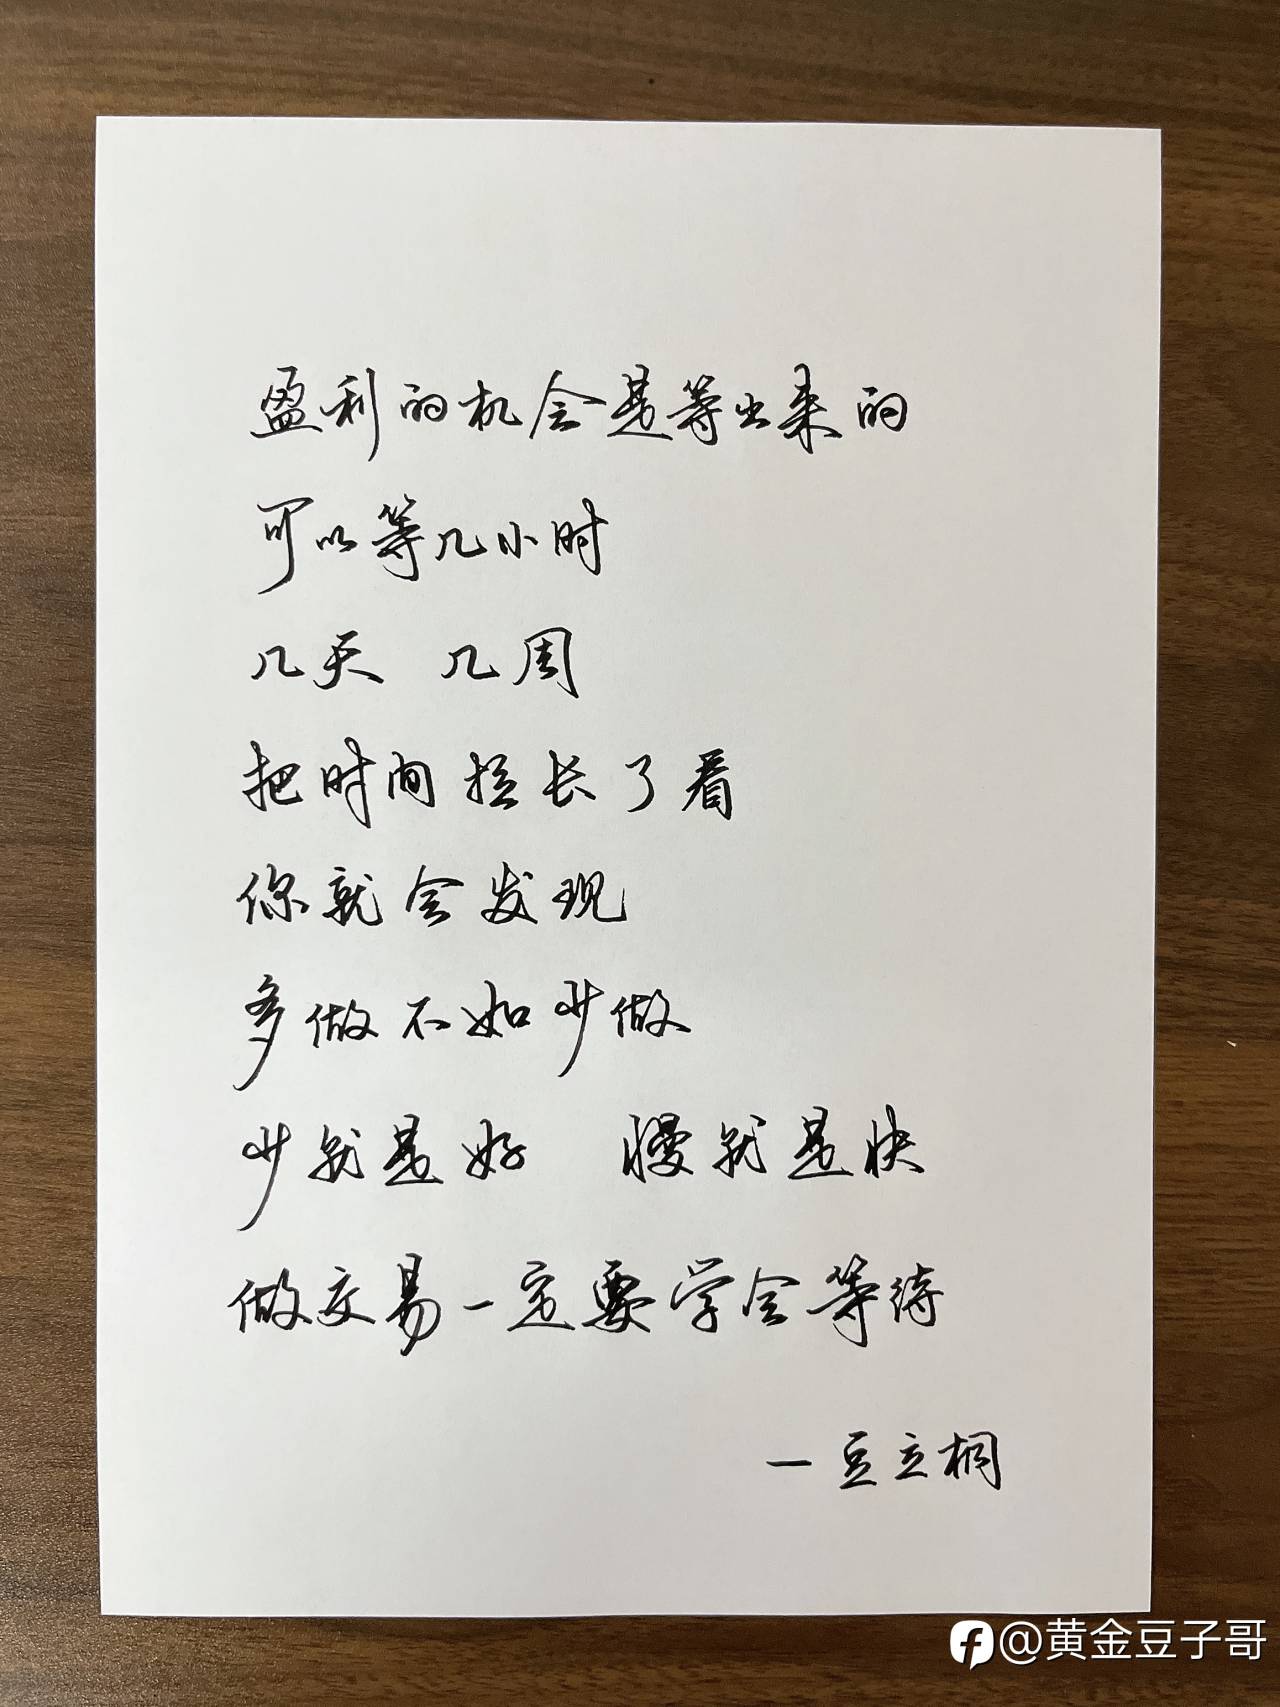 盈利的机会是等出来的
可以等几小时
几天 几周
把时间拉长了看
你就会发现
多做不如少做
少就是好 慢就是快
做交易一定要学会等待
一豆立桐
@黄金豆子哥